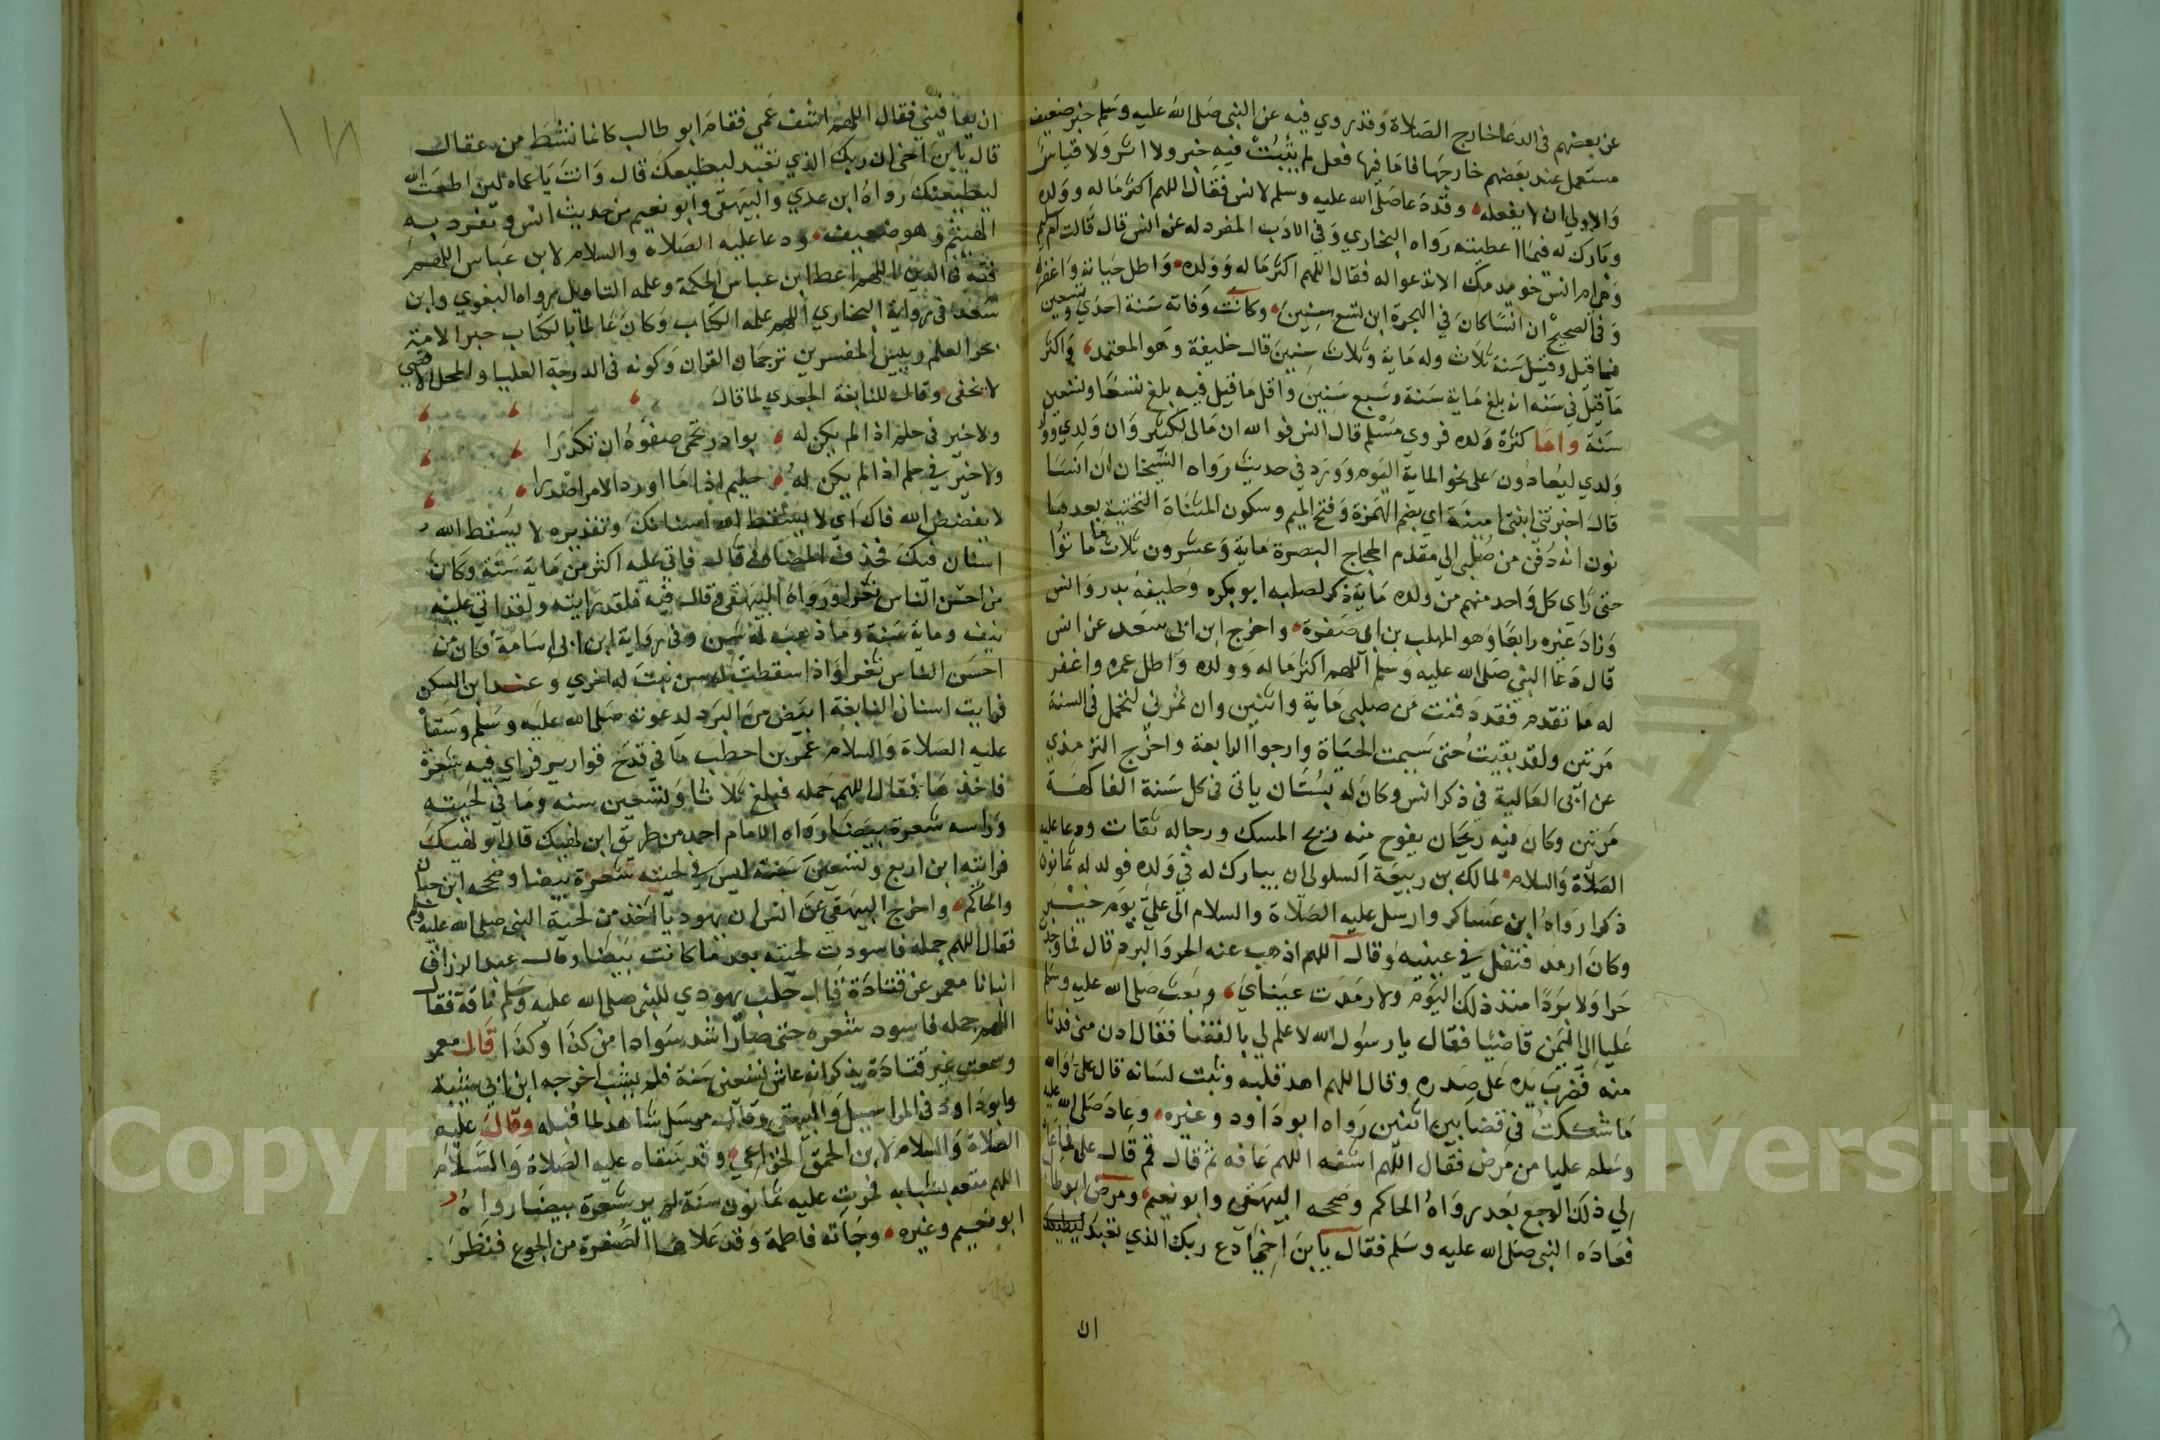 عن بعضهم في الدعا خارج الصلاة وقد روي فيه عن النبي صلى الله عليه وسلم خبر ضعيف
مستعمل عند بعضهم خارجها فاما فيها فعل لم يثبت فيه خبر ولا اثر ولا قياس
والاولي ان لا يفعله وقد دعا صلى الله عليه وسلم لانس فقال اللهم اكثر ماله وولده
وبارك له فيما اعطيته رواه البخاري وفي الادب المفرد له عن انس قال قالت ام سليم
وهي ام انس خويدمك الا تدعوا له فقال اللهم اكثر ماله وولده واطل حياته واغفر له
وفي الصحيح ان انسا كان في الهجرة ابن تسع سنين وكانت وفاته سنة احدي وتسعين
فيما قيل وقيل سنة ثلاث وله ماية وثلاث سنين قاله خليفة وهو المعتمد واكثر
ما قيل في سنه انه بلغ ماية سنة وسبع سنين واقل ما قيل فيه بلغ تسعا وتسعين
سنة واما كثرة ولده فروي مسلم قال انس فو الله ان مالي لكثير وان ولدي وولد
ولدي ليعادون على نحو الماية اليوم وورد في حديث رواه الشيخان ان انسا
قال اخبرتني ابنتي امينة اي بضم الهمزة وفتح الميم وسكون المثناة التحتية بعدها
نون انه دفن من صلبي الي مقدم الحجاج البصرة ماية وعشرون ثلاث ما ماتوا
حتى راي كل واحد منهم من ولده ماية ذكر لصلبه ابو بكره وخليفة بدر وانس
وزاد غيره رابعا وهو المهلب بن ابي صفرة واخرج ابن ابي سعد عن انس
قال دعا النبي صلى الله عليه وسلم اللهم اكثر ماله وولده واطل عمره واغفر
له ما تقدم فقد دفنت من صلبي ماية واثنين وان ثمرتي لتحمل في السنة
مرتين ولقد بقيت حتى سيمت الحياة وارجوا الرابعة واخرج الترمذي
عن ابي العالية في ذكر انس وكان له بستان ياتي في كل سنة الفاكهة
مرتين وكان فيه ريحان يفوح منه ريح المسك ورجاله ثقات ودعا عليه
الصلاة والسلام لمالك بن ربيعة السلولي ان يبارك له في ولده فولد له ثمانون
ذكرا رواه ابن عساكر وارسل عليه الصلاة والسلام الى علي يوم خيبر
وكان ارمد فتفل في عينيه وقال اللهم اذهب عنه الحر والبرد قال فما وجدت
حرا ولا بردا منذ ذلك اليوم ولا رمدت عيناي وبعث صلى الله عليه وسلم
عليا الي اليمن قاضيا فقال يا رسول الله لا علم لي بالقضا فقال ادن مني فدنا
منه فضرب يده على صدره وقال اللهم اهد قلبه وثبت لسانه قال علي والله
ما شككت في قضا بين اثنين رواه ابو داود وغيره وعاد صلى الله عليه
وسلم عليا من مرض فقال اللهم اشفه اللهم عافه ثم قال قم قال علي فما عاد
الي ذلك الوجع بعد رواه الحاكم وصححه البيهقي وابو نعيم ومرض ابو طالب
فعاده النبي صلى الله عليه وسلم فقال يا ابن اخي ادع ربك الذي تعبد ليطيعك
ان
ان يعافيني فقال اللهم اشف عمي فقام ابو طالب كانما نشط من عقال
قال يا ابن اخي ان ربك الذي تعبد ليطيعك قال وانت يا عماه لين اطعت الله
ليطيعنك رواه ابن عدي والبيهقي وابو نعيم من حديث انس وتفرد به
الهيثم وهو ضعيف ودعا عليه الصلاة والسلام لابن عباس اللهم
فقهه في الدين اللهم اعط ابن عباس الحكمة وعلمه التاويل رواه البغوي وابن
سعد في رواية البخاري اللهم علمه الكتاب وكان عالما بالكتاب حبر الامة
بحر العلم رييس المفسرين ترجمان القران وكونه في الدرجة العليا والمحل الاقصي
لا يخفى وقال للنابغة الجعدي لما قال
ولا خير في حلم اذا لم يكن له بوادر تحمي صفوه ان تكدرا
ولا خير في حلم اذا لم يكن له حليم اذا ما اورد الامر اصدرا
لا يفضض الله فاك اي لا يسقط الله اسنانك وتقديره لا يسقط الله
اسنان فيك فحذف المضاف قال فاتي عليه اكثر من ماية سنة وكان
من احسن الناس ثغرا ورواه البيهقي وقال فيه فلقد رايته ولقد اتي عليه
نيف وماية سنة وما ذهب له سن وفي رواية ابن ابي اسامة فكان من
احسن الناس ثغرا واذا سقطت له سن نبتت له اخري وعند ابن السكن
فرايت اسنان النابغة ابيض من البرد لدعوته صلى الله عليه وسلم وسقاه
عليه الصلاة والسلام عمر بن اخطب ما في قدح قوارير فراي فيه شعرة
فاخذها فقال اللهم جمله فبلغ ثلاثا وتسعين سنه وما في لحيته
وراسه شعرة بيضا رواه الامام احمد من طريق ابن نهيك قال ابو نهيك
فرايته ابن اربع وتسعين سنة ليس في لحيته شعرة بيضا وصححه ابن حبان
والحاكم واخرج البيهقي عن انس ان يهوديا اخذ من لحية النبي صلى الله عليه وسلم
فقال اللهم جمله فاسودت لحيته بعد ما كانت بيضا وقال عبد الرزاق
انبانا معمر عن قتادة قال حلب يهودي للنبي صلى الله عليه وسلم ناقة فقال
اللهم جمله فاسود شعره حتى صار اشد سوادا من كذا وكذا قال معمر
وسمعت غير قتادة يذكر انه عاش تسعين سنة فلم يشب اخرجه ابن ابي شيبة
وابو داود في المراسيل والبيهقي وقال مرسل شاهد لما قبله وقال عليه
الصلاة والسلام لابن الحمق الخزاعي وقد سقاه عليه الصلاة والسلام
اللهم متعه بشبابه فمرت عليه ثمانون سنة لم ير شعرة بيضا رواه
ابو نعيم وغيره وجاته فاطمة وقد علاها الصفرة من الجوع فنظر
Copyright © King Saud University
جامعة الملك سعود